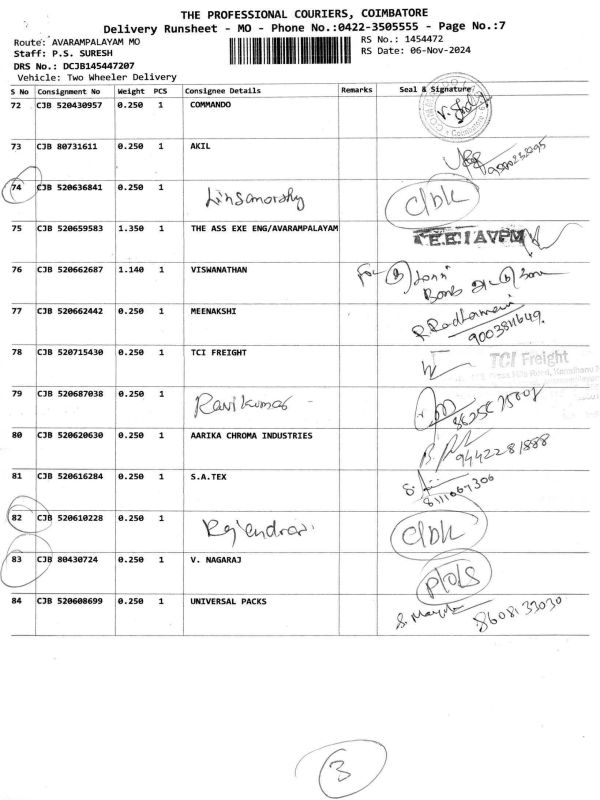 THE PROFESSIONAL COURIERS, COIMBATORE
Delivery Runsheet - MO - Phone No.:0422-3505555 - Page No.:7
Route: AVARAMPALAYAM MO RS No.: 1454472
Staff: P.S. SURESH RS Date: 06-Nov-2024
DRS No.: DCJB145447207
Vehicle: Two Wheeler Delivery
S No Consignment No Weight PCS Consignee Details Remarks Seal & Signature
72 CJB 520430957 0.250 1 COMMANDO
73 CJB 80731611 0.250 1 AKIL
74 CJB 520636841 0.250 1 c/bk
75 CJB 520659583 1.350 1 THE ASS EXE ENG/AVARAMPALAYAM
76 CJB 520662687 1.140 1 VISWANATHAN For
77 CJB 520662442 0.250 1 MEENAKSHI
78 CJB 520715430 0.250 1 TCI FREIGHT TCI Freight
79 CJB 520687038 0.250 1 Ravikumar
80 CJB 520620630 0.250 1 AARIKA CHROMA INDUSTRIES 9442281888
81 CJB 520616284 0.250 1 S.A.TEX 8111067306
82 CJB 520610228 0.250 1 Rajendran. c/bk
83 CJB 80430724 0.250 1 V. NAGARAJ
84 CJB 520608699 0.250 1 UNIVERSAL PACKS 8608133030
3